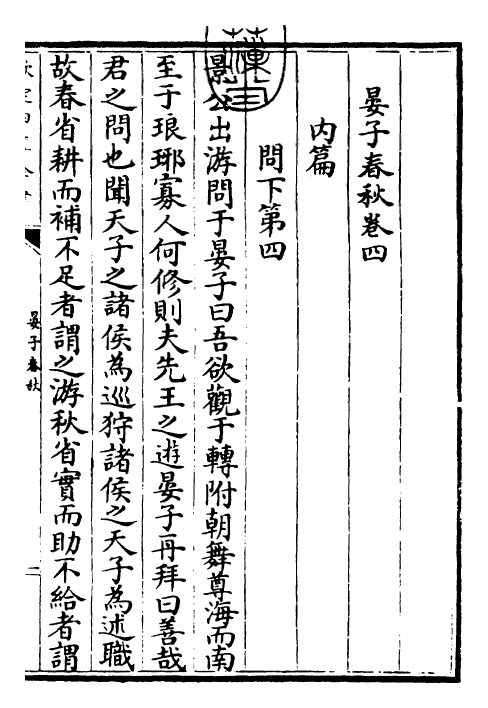 晏子春秋卷四
内篇
問下第四
景公出游問于晏子曰吾欲觀于轉附朝舞尊海而南
至于琅琊寡人何修則夫先王之遊晏子再拜曰善哉
君之問也聞天子之諸侯為巡狩諸侯之天子為述職
故春省耕而補不足者謂之游秋省實而助不給者謂
晏子春秋